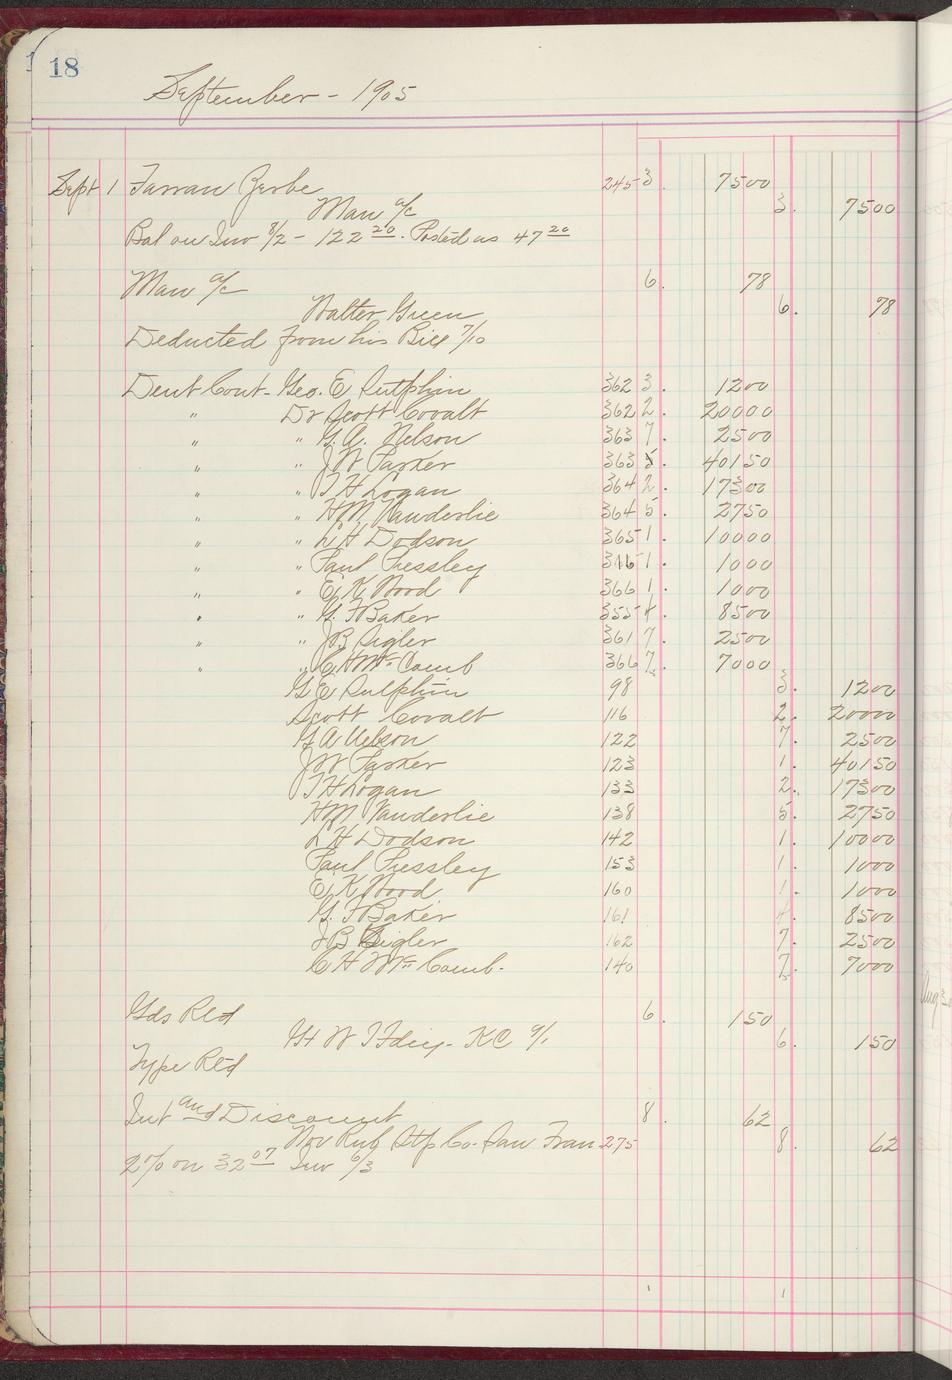 18
September - 1905
Sept 1 Farran Zerbe 245 3. 7500
Man a/c 3. 7500
Bal on Inv 8/2 - 122 20. Posted as 47 20
Man a/c 6. 78
Walter Green 6. 78
Deducted from his Bill 7/10
Dent Cont - Geo. E Sutphin 362 3. 1200
" Dr Scott Covalt 362 2. 20000
" " G.A. Nelson 363 7. 2500
" " J W Parker 363 . 40150
" " T H Logan 364 2. 17300
" " H M Vanderslie 364 5. 2750
" " L H Dodson 365 1. 10000
" " Paul Pressley 1. 1000
" " E. K. Wood 366 1. 1000
" " G. F Baker 355 4. 8500
" " J B Sigler 361 7. 2500
" " C H Mc Comb 366 7. 7000
G E Sutphin 98 3. 1200
Scott Covalt 116 2. 20000
G A Nelson 122 7. 2500
J W Parker 123 1. 40150
T H Logan 133 2. 17300
H M Vanderslie 138 5. 2750
L H Dodson 142 1. 10000
Paul Pressley 153 1. 1000
E. K. Wood 160 1. 1000
G. F Baker 161 4. 8500
J B Sigler 162 7. 2500
C H Mc Comb. 140 7. 7000
Gds Retd 6. 150
Gt W T Fdry - KC 6. 150
Type Retd
Int and Discount 8. 62
Rub Stp Co. San Fran 275 8. 62
2% on 32 07 Inv 6/3